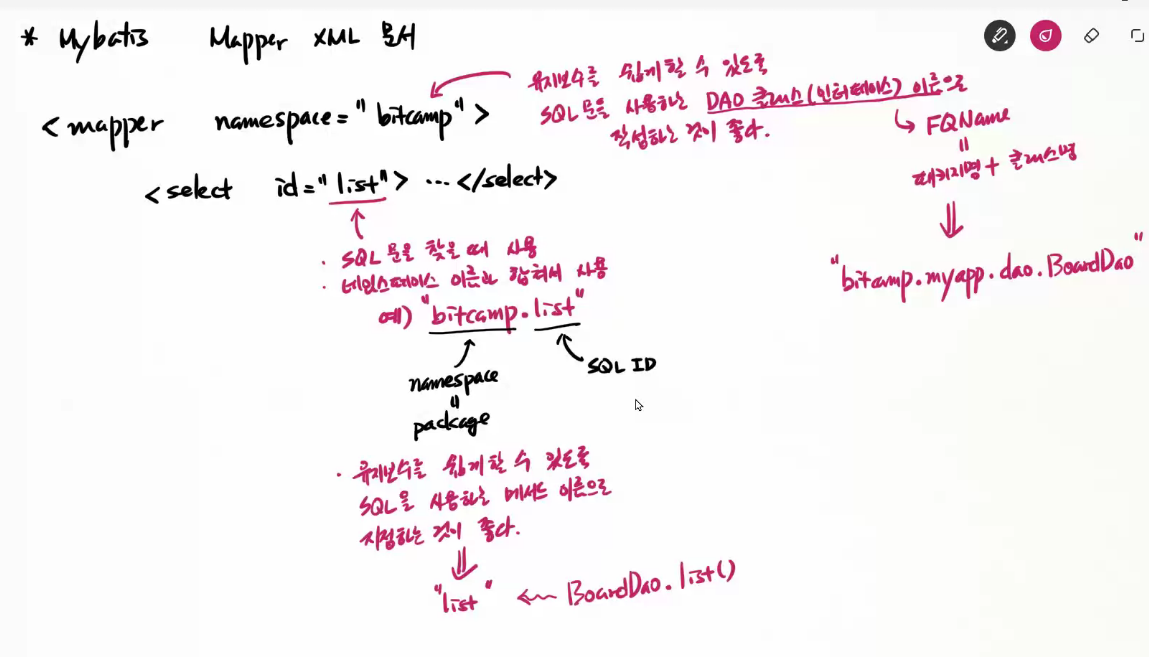 * Mybatis Mapper XML 문서
유지보수를 쉽게 할 수 있도록
SQL문을 사용하는 DAO 클래스(인터페이스) 이름으로
작성하는 것이 좋다.
↳ FQName
=
패키지명 + 클래스명
⇓
"bitcamp.myapp.dao.BoardDao"
<mapper namespace="bitcamp">
<select id="list"> ... </select>
· SQL문을 찾을 때 사용
· 네임스페이스 이름과 합쳐서 사용
예) "bitcamp.list"
namespace
=
package
SQL ID
· 유지보수를 쉽게 할 수 있도록
SQL을 사용하는 메서드 이름으로
지정하는 것이 좋다.
⇓
"list" ← BoardDao.list()